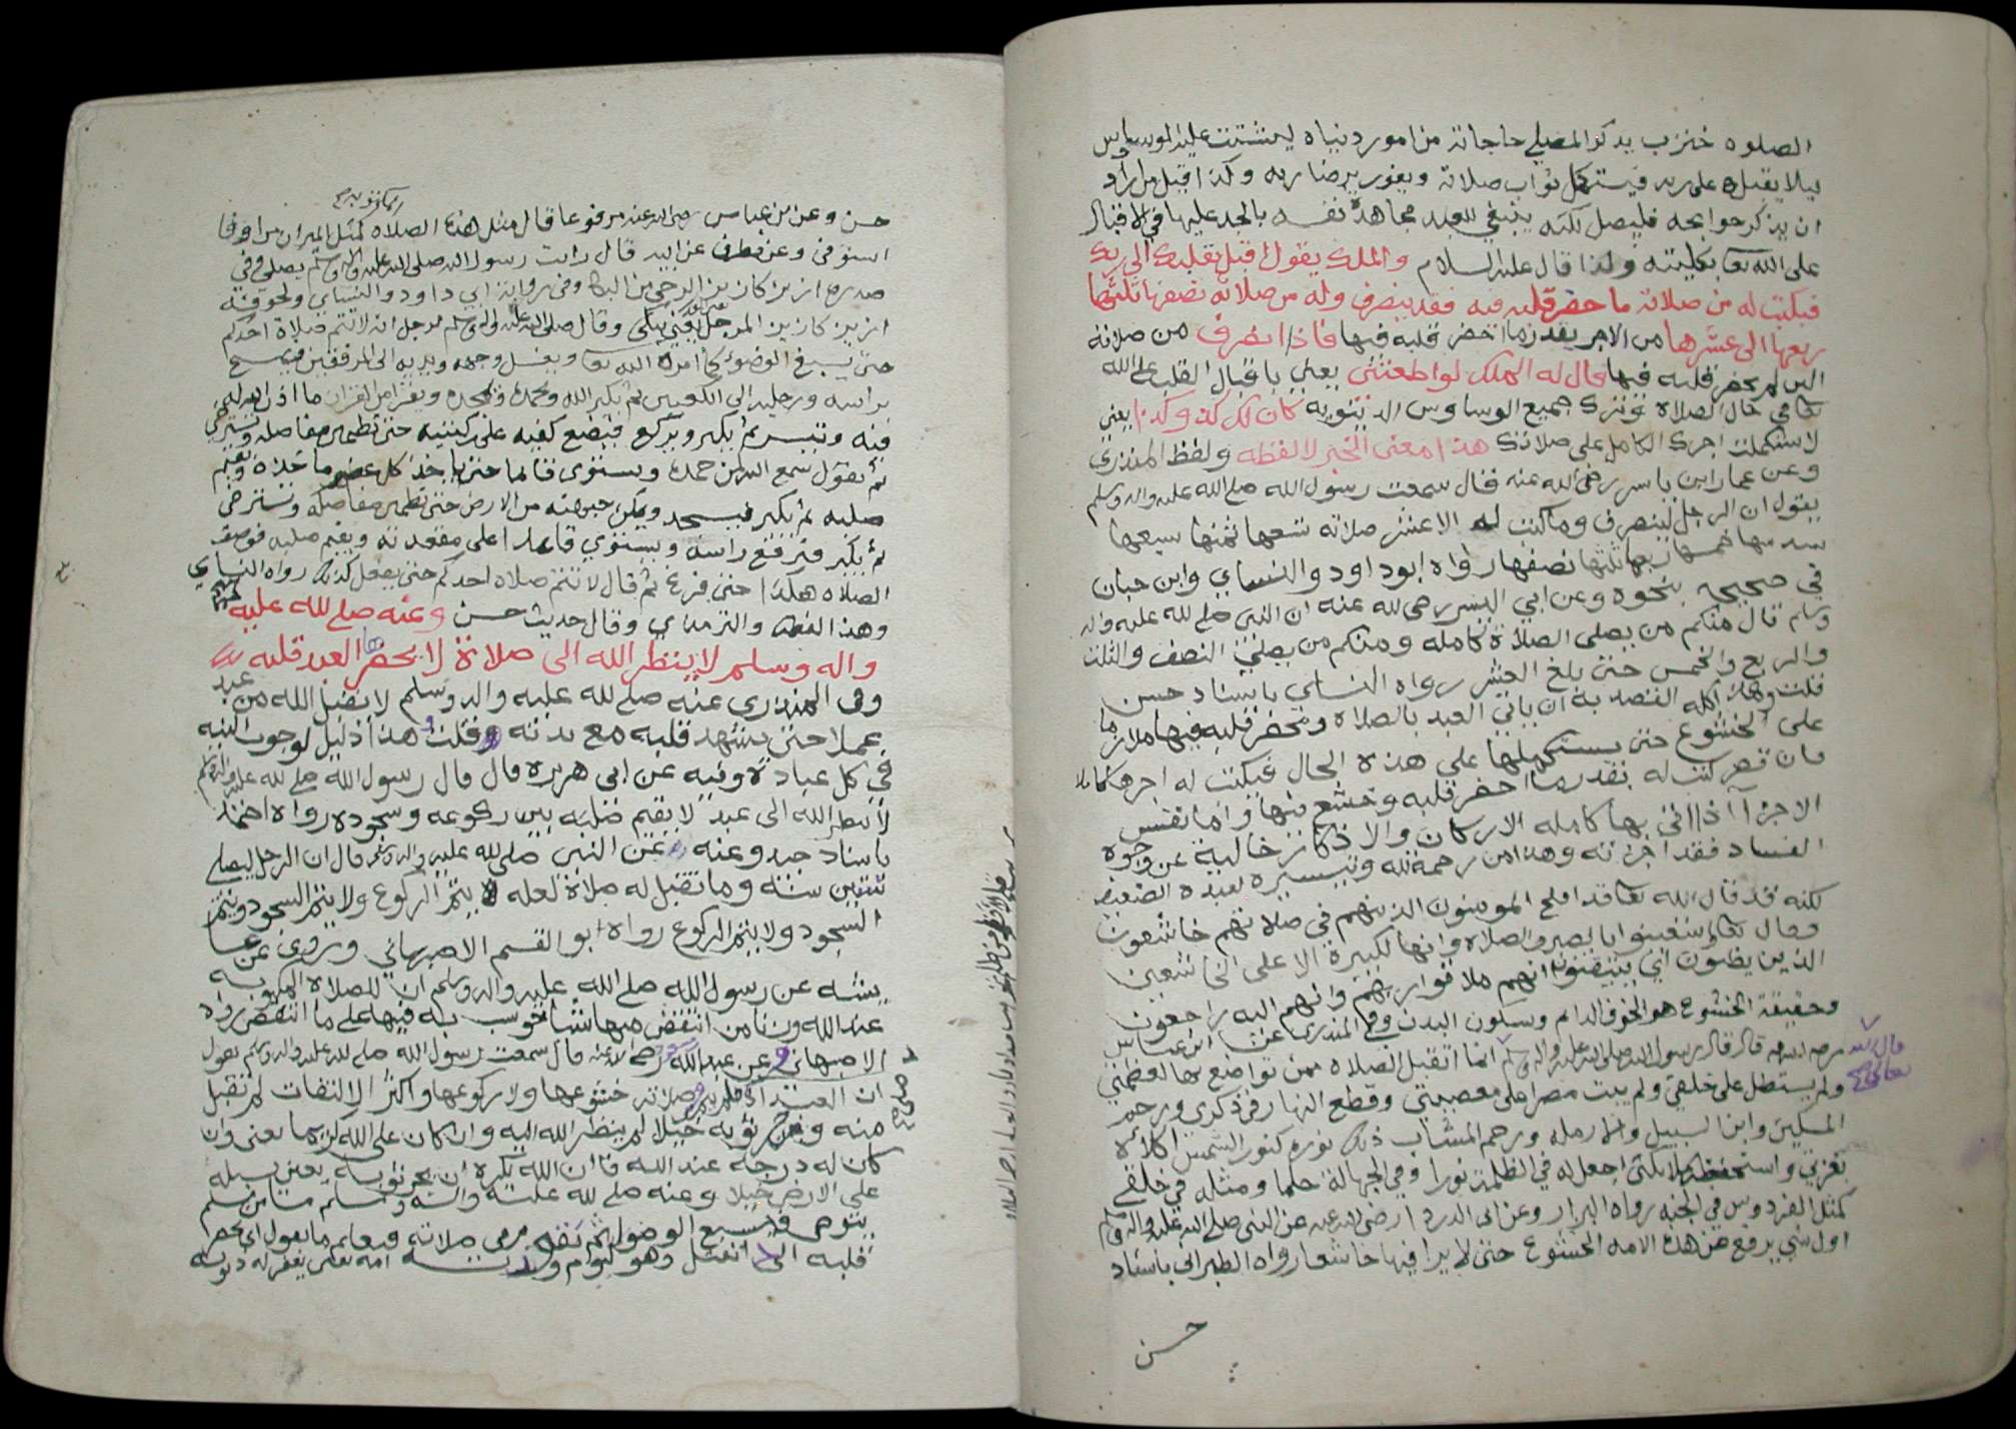 الصلوه خنزب يذكر المصلي حاجاته من امور دنياه ليتشتت عليه الوسواس
ليلا يقبل على ربه فيستكمل ثواب صلاته ويفوز برضا ربه وكذا قيل من اراد
ان يذكر حوايجه فليصل لكنه ينبغي للعبد مجاهدة نفسه بالجد عليها في الاقبال
على الله تعا بكليته ولذا قال عليه السلام والملك يقول اقبل بقلبك الى ربك
فيكتب له من صلاته ما حضر قلبه فيه فقد ينصرف وله من صلاته نصفها ثلثها
ربعها الى عشرها من الاجر بقدر ما احضر قلبه فيها فاذا انصرف من صلاته
التي لم يحضر قلبه فيها قال له الملك لو اطعتني يعني باقبال القلب على الله
تعا في حال الصلاة وترك جميع الوساوس الدنيويه كان لك كذا وكذا يعني
لاستكملت اجرك الكامل على صلاتك هذا معنى الخبر لا لفظه ولفظ المنذري
وعن عمار ابن ياسر رضي الله عنه قال سمعت رسول الله صلى الله عليه واله وسلم
يقول ان الرجل لينصرف وما كتب له الا عشر صلاته تسعها ثمنها سبعها
سدسها خمسها ربعها ثلثها نصفها رواه ابو داود والنساي وابن حبان
في صحيحه بنحوه وعن ابي اليسر رضي الله عنه ان النبي صلى الله عليه واله
وسلم قال منكم من يصلى الصلاة كامله ومنكم من يصلي النصف والثلث
والربع والخمس حتى بلغ العشر رواه النساي باسناد حسن
قلت وهذا كله القصد به ان ياتي العبد بالصلاة ويحضر قلبه فيها ملازما
على الخشوع حتى يستكملها على هذه الحال فيكتب له اجرها كاملا
فان قصر كتب له بقدر ما احضر قلبه وخشع فيها واما نفس
الاجزآ اذا اتى بها كامله الاركان والاذكار خالية عن وجوه
الفساد فقد اجزته وهذا من رحمة الله وتيسيره لعبده الضعيف
لكنه قد قال الله تعا قد افلح المومنون الذين هم في صلاتهم خاشعون
وقال تعا واستعينوا بالصبر والصلاه وانها لكبيرة الا على الخاشعين
الذين يظنون اي يتيقنون انهم ملاقوا ربهم وانهم اليه راجعون
وحقيقة الخشوع هو الخوف الدايم وسكون البدن وفي المنذري عن ابن عباس
رضي الله عنه قال قال رسول الله صلى الله عليه واله وسلم انما اتقبل الصلاه ممن تواضع بها لعظمتي
قال الله تعالى
ولم يستطل على خلقي ولم يبت مصرا على معصيتي وقطع النهار في ذكري ورحم
المسكين وابن السبيل والارمله ورحم المصاب ذلك نوره كنور الشمس اكلاه
بعزتي واستحفظه ملايكتي اجعل له في الظلمة نورا وفي الجهالة حلما ومثله في خلقي
كمثل الفردوس في الجنه رواه البزار وعن ابي الدردا رضي الله عنه عن النبي صلى الله عليه واله وسلم
اول شي يرفع من هذه الامه الخشوع حتى لا يرا فيها خاشعا رواه الطبراني باسناد
حسن
حسن وعن ابن عباس رضي الله عنه مرفوعا قال مثل هذه الصلاه كمثل الميزان من اوفا
استوفى وعن مطرف عن ابيه قال رايت رسول الله صلى الله عليه واله وسلم يصلي وفي
صدره ازيز كازيز الرحى من البكا وفي رواية ابي داود والنساي ولجوفه
ازيز كازيز المرجل يعني يبكي وقال صلى الله عليه واله وسلم لرجل انه لا تتم صلاة احدكم
حتى يسبغ الوضوء كما امره الله تعا ويغسل وجهه ويديه الى المرفقين ويمسح
براسه ورجليه الى الكعبين ثم يكبر الله ويحمده ويمجده ويقرا من القران ما اذن الله له
فيه وتيسر ثم يكبر ويركع فيضع كفيه على ركبتيه حتى تطمين مفاصله وتسترخي
ثم يقول سمع الله لمن حمده ويستوي قائما حتى ياخذ كل عضو ماخذه ويقيم
صلبه ثم يكبر فيسجد ويمكن جبهته من الارض حتى تطمين مفاصله وتسترخي
ثم يكبر فيرفع راسه ويستوي قاعدا على مقعدته ويقيم صلبه فوصف
الصلاه هكذا حتى فرغ ثم قال لا تتم صلاة احدكم حتى يفعل كذلك رواه النساي
وهذا لفظه والترمذي وقال حديث حسن وعنه صلى الله عليه
واله وسلم لا ينظر الله الى صلاة لا يحضر العبد قلبه
وفي المنذري عنه صلى الله عليه واله وسلم لا يقبل الله من عبد
عملا حتى يشهد قلبه مع بدنه قلت وهذا دليل لوجوب النيه
في كل عبادة وفيه عن ابي هريره قال قال رسول الله صلى الله عليه واله وسلم
لا ينظر الله الى عبد لا يقيم صلبه بين ركوعه وسجوده رواه احمد
باسناد جيد وعنه عن النبي صلى الله عليه واله وسلم قال ان الرجل ليصلي
ستين سنة وما تقبل له صلاة لعله يتم الركوع ولا يتم السجود ويتم
السجود ولا يتم الركوع رواه ابو القسم الاصبهاني وروي عن عا
يشه عن رسول الله صلى الله عليه واله وسلم ان للصلاه المكتوبه
عند الله وزنا من انتقص منها شيا حوسب به فيها على ما انتقص رواه
الاصبهاني وعن عبد الله رضي الله عنه قال سمعت رسول الله صلى الله عليه واله وسلم يقول
ان العبد اذا صلى فلم يتم صلاته خشوعها ولا ركوعها واكثر الالتفات لم تقبل
منه ومن جر ثوبه خيلا لم ينظر الله اليه وان كان على الله كريما يعني وان
كان له درجة عند الله فان الله يكره ان يجر ثوبه يعني يسبله
على الارض خيلا وعنه صلى الله عليه واله وسلم ما من مسلم
يتوضى فيسبغ الوضوء ثم يقوم في صلاته فيعلم ما يقول اي يحضر
قلبه الا انفتل وهو كيوم ولدته امه يعني يغفر له ذنوبه